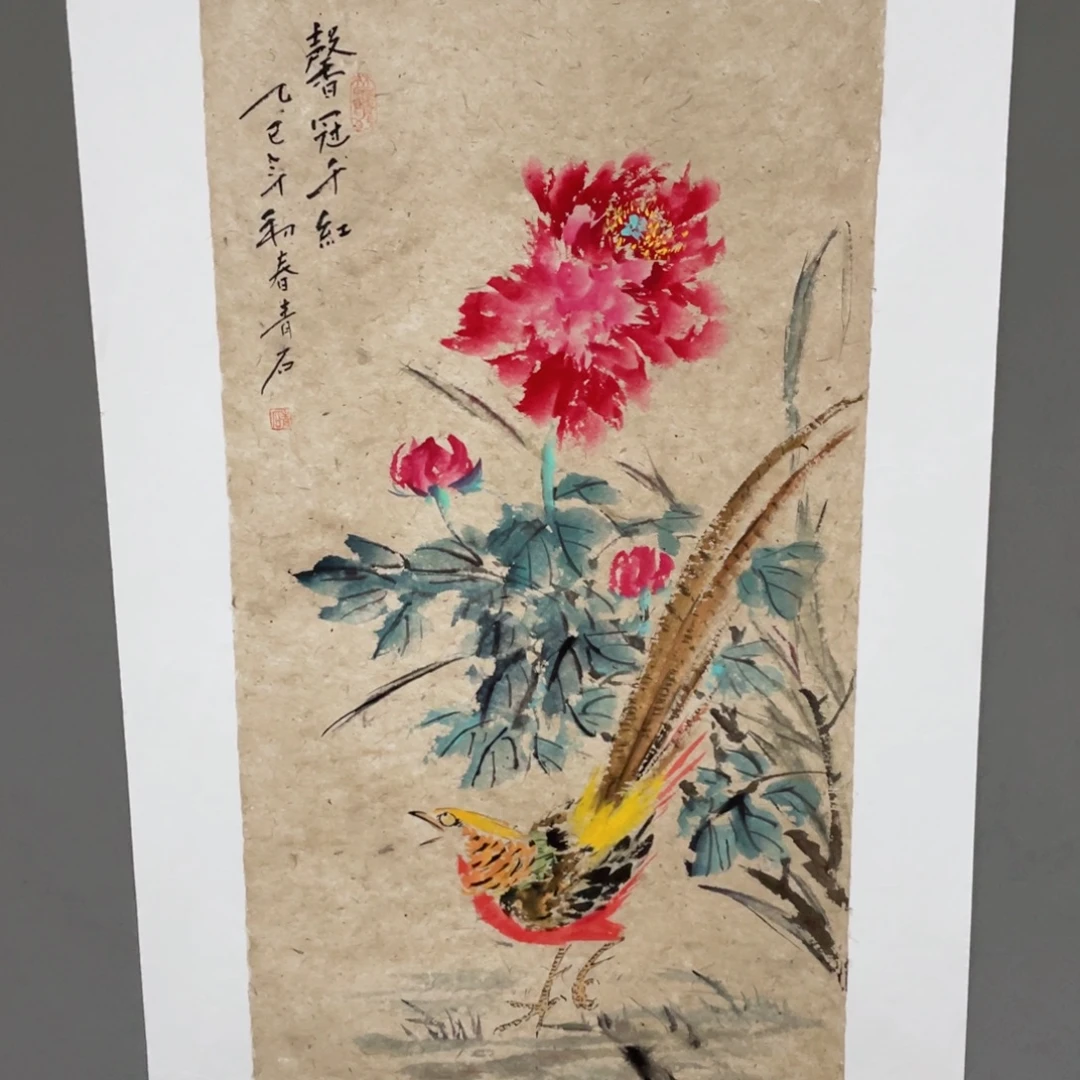 馨冠千紅
乙巳年初春青石